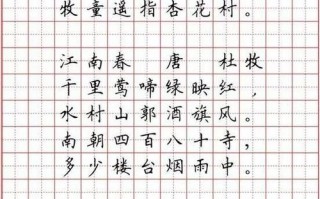 牧童遥指杏花村。
江南春 唐 杜牧
千里莺啼绿映红，
水村山郭酒旗风。
南朝四百八十寺，
多少楼台烟雨中。